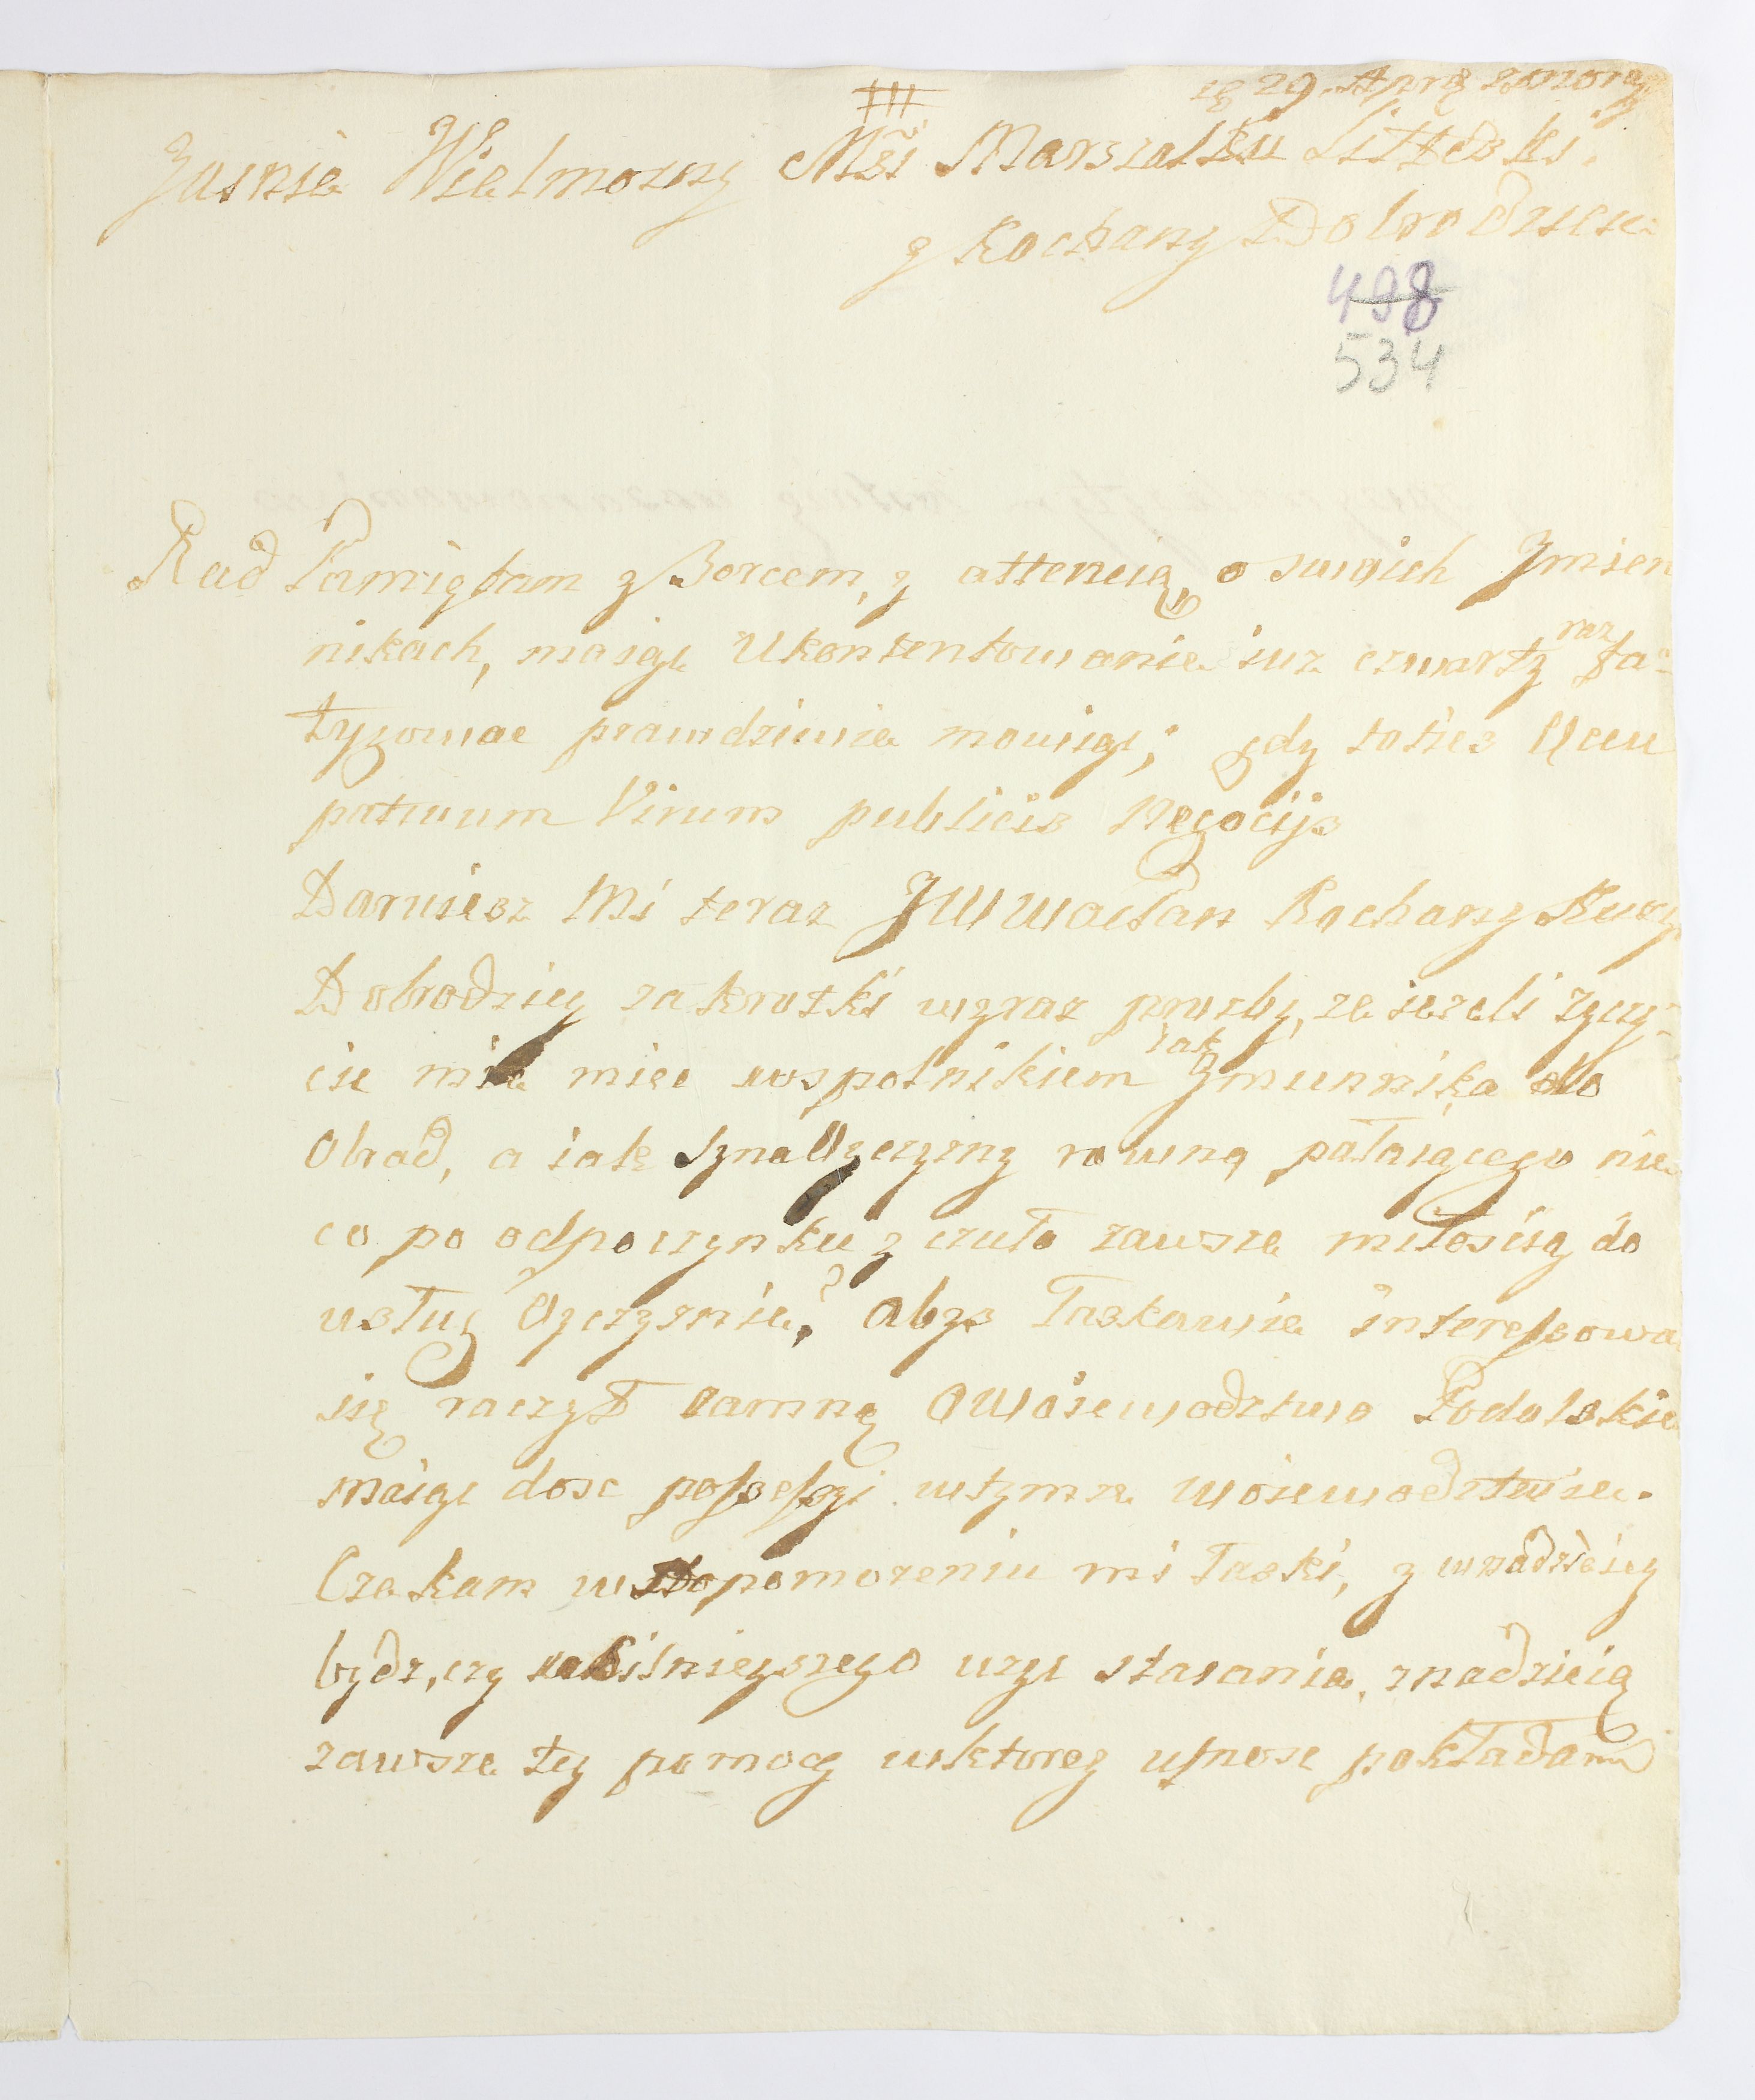 29. Apr
Jasnie Wielmozny Mći Marszałku Littewski.
y Kochany Dobrodzieiu
498
534
Rad Pamiętam z Sercem, y attencią, o swoich Jmien
nikach, maiąc Ukontentowanie iuz czwarty raz fa-
tygowac prawdziwie mowiąc; gdy toties Occu
patuum Virum publicis Negocijs
Daruiesz Mi teraz JWWacPan Kochany
Dobrodziey za krotki wyraz prozby, ze iezeli zyczy-
cie mie miec wspolnikiem iak Jmiennika do
Obrad, a iak Syna Oyczyzny rowną pałaiącego nie
co po odpoczynku y czuło zawsze miłoscią do
usług Oyczyznie, abys łaskawie interessowa
się raczył zamną o Woiewodztwo Podolskie
maiąc dosc possessyi w tymze Woiewodztwie.
Czekam w dopomozeniu mi łaski, y w nadzieiey
bydz, czy silnieyszego uzyc starania, z nadzieią
zawsze tey pomocy w ktorey ufnosc pokładam